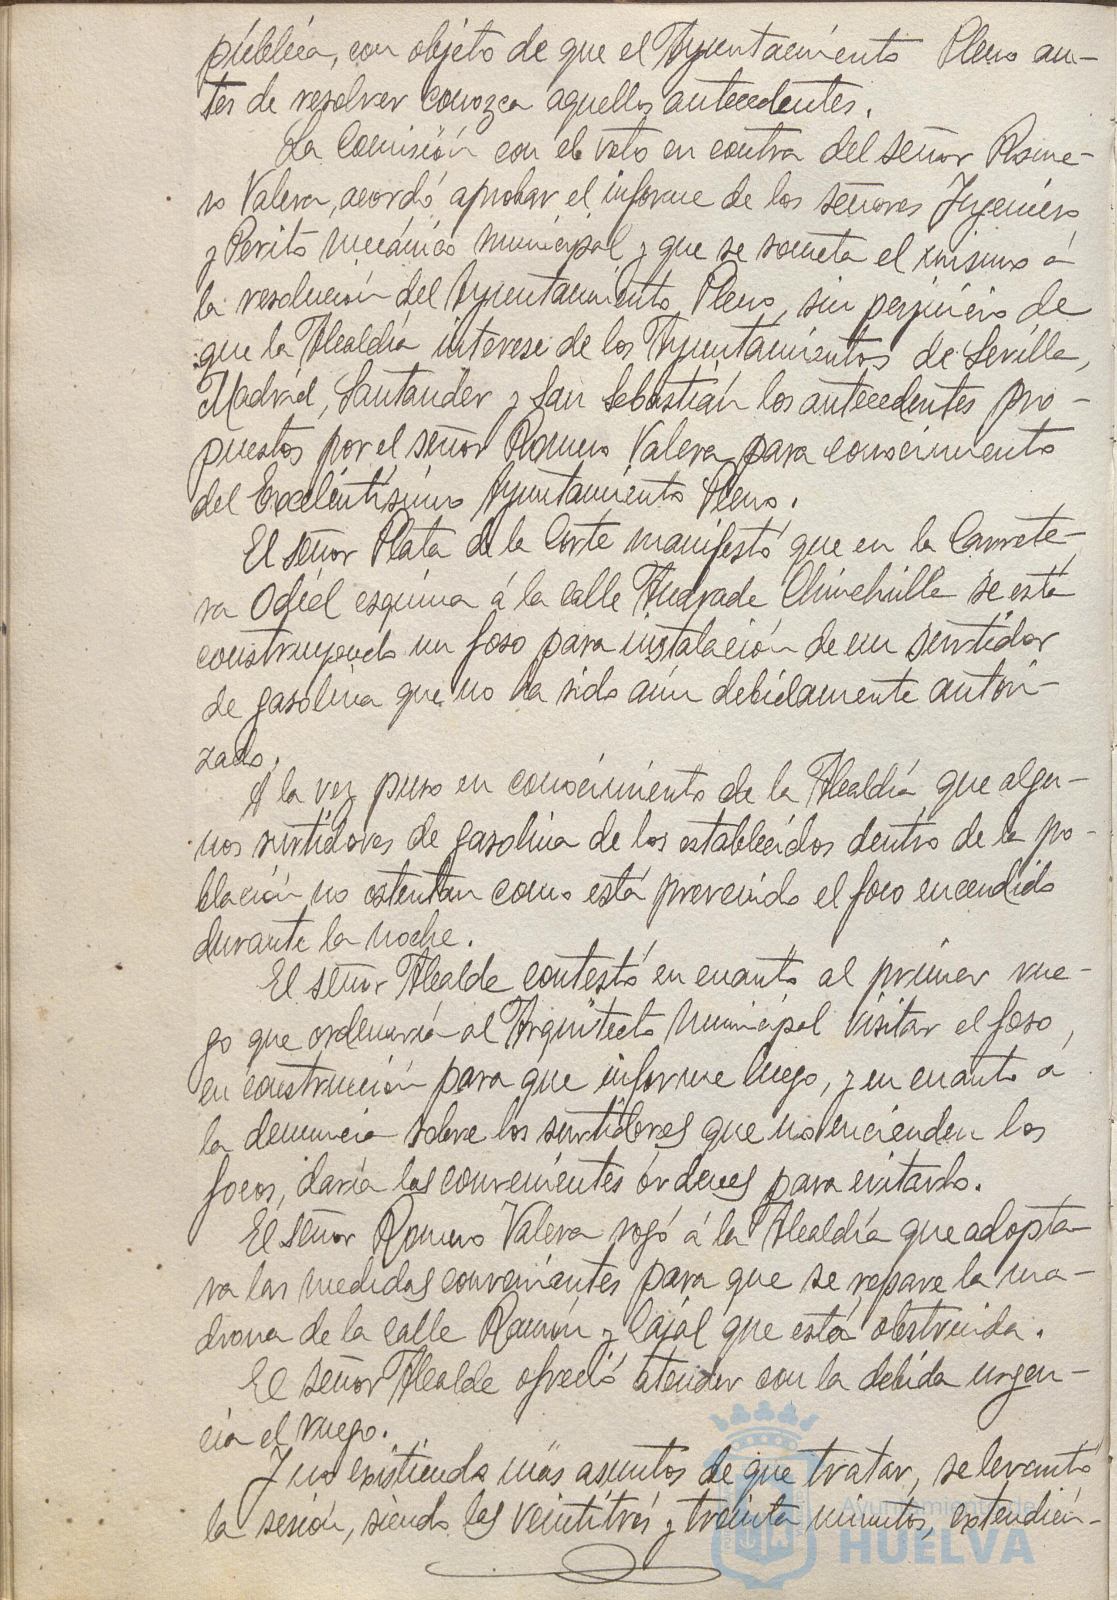 pública, con objeto de que el Ayuntamiento Pleno an-
tes de resolver conozca aquellos antecedentes.
La Comisión con el voto en contra del señor Rome-
ro Valera, acordó aprobar el informe de los señores Ingeniero
y Perito mecánico municipal y que se someta el mismo á
la resolución del Ayuntamiento Pleno, sin perjuicio de
que la Alcaldía interese de los Ayuntamientos de Sevilla,
Madrid, Santander y San Sebastián los antecedentes pro-
puestos por el señor Romero Valera para conocimiento
del Excelentísimo Ayuntamiento Pleno.
El señor Plata de la Corte manifestó que en la Carrete-
ra Odiel esquina á la calle Andrade Chinchilla se está
construyendo un foso para instalación de un surtidor
de gasolina que no ha sido aún debidamente autori-
zado.
A la vez puso en conocimiento de la Alcaldía que algu-
nos surtidores de gasolina de los establecidos dentro de la po-
blación no ostentan como está prevenido el foco encendido
durante la noche.
El señor Alcalde contestó en cuanto al primer rue-
go que ordenaría al Arquitecto Municipal visitar el foso
en construcción para que informe luego, y en cuanto á
la denuncia sobre los surtidores que no encienden los
focos, daría las convenientes órdenes para evitarlo.
El señor Romero Valera rogó á la Alcaldía que adopta-
ra las medidas convenientes para que se repare la ma-
drona de la calle Ramón y Cajal que está obstruida.
El señor Alcalde ofreció atender con la debida urgen-
cia el ruego.
Y no existiendo más asuntos de que tratar, se levantó
la sesión, siendo las veintitrés y treinta minutos, extendién-
Ayuntamiento de
HUELVA